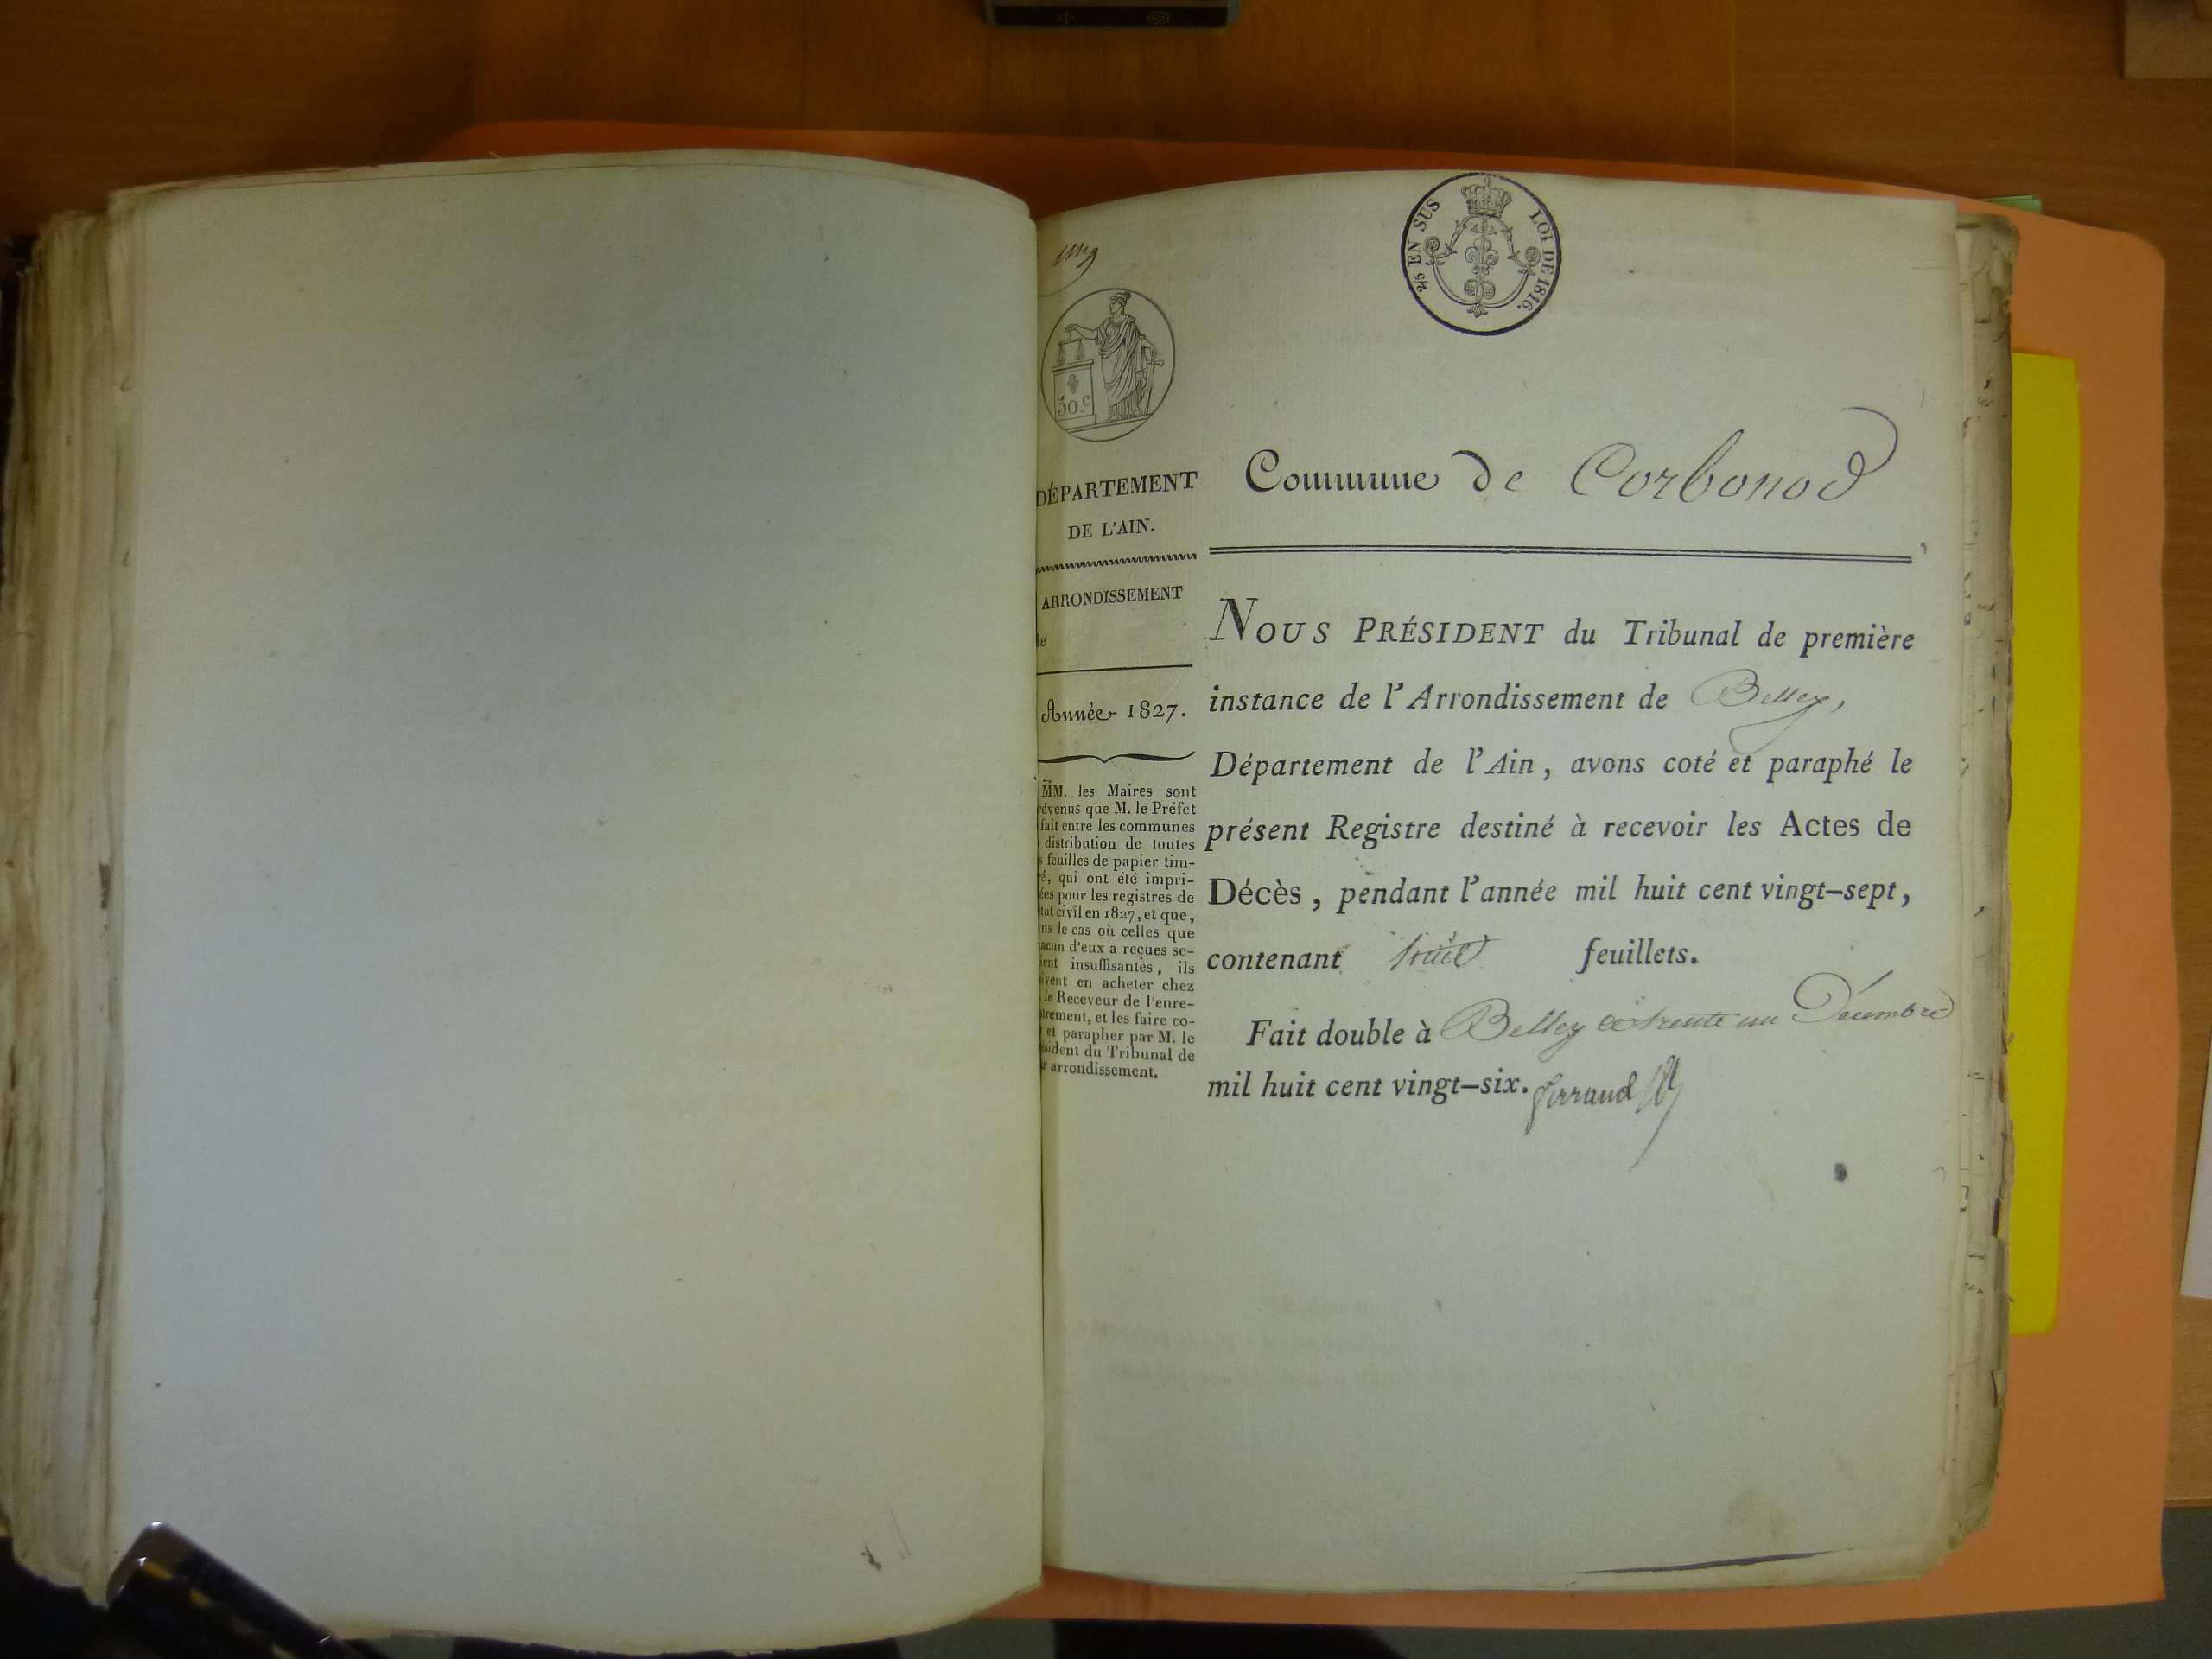 2/5 EN SUS
LOI DE 1816.
50.c
DÉPARTEMENT
DE L'AIN.
ARRONDISSEMENT
de
Année 1827.
MM. les Maires sont
révenus que M. le Préfet
fait entre les communes
distribution de toutes
s feuilles de papier tim-
ré, qui ont été impri-
ées pour les registres de
état civil en 1827, et que,
ans le cas où celles que
acun d'eux a reçues se-
ient insuffisantes, ils
ivent en acheter chez
. le Receveur de l'enre-
trement, et les faire co-
r et parapher par M. le
ésident du Tribunal de
r arrondissement.
Commune de Corbonod
NOUS PRÉSIDENT du Tribunal de première
instance de l'Arrondissement de Belley,
Département de l'Ain, avons coté et paraphé le
présent Registre destiné à recevoir les Actes de
Décès, pendant l'année mil huit cent vingt-sept,
contenant huit feuillets.
Fait double à Belley ce trente un Décembre
mil huit cent vingt-six.